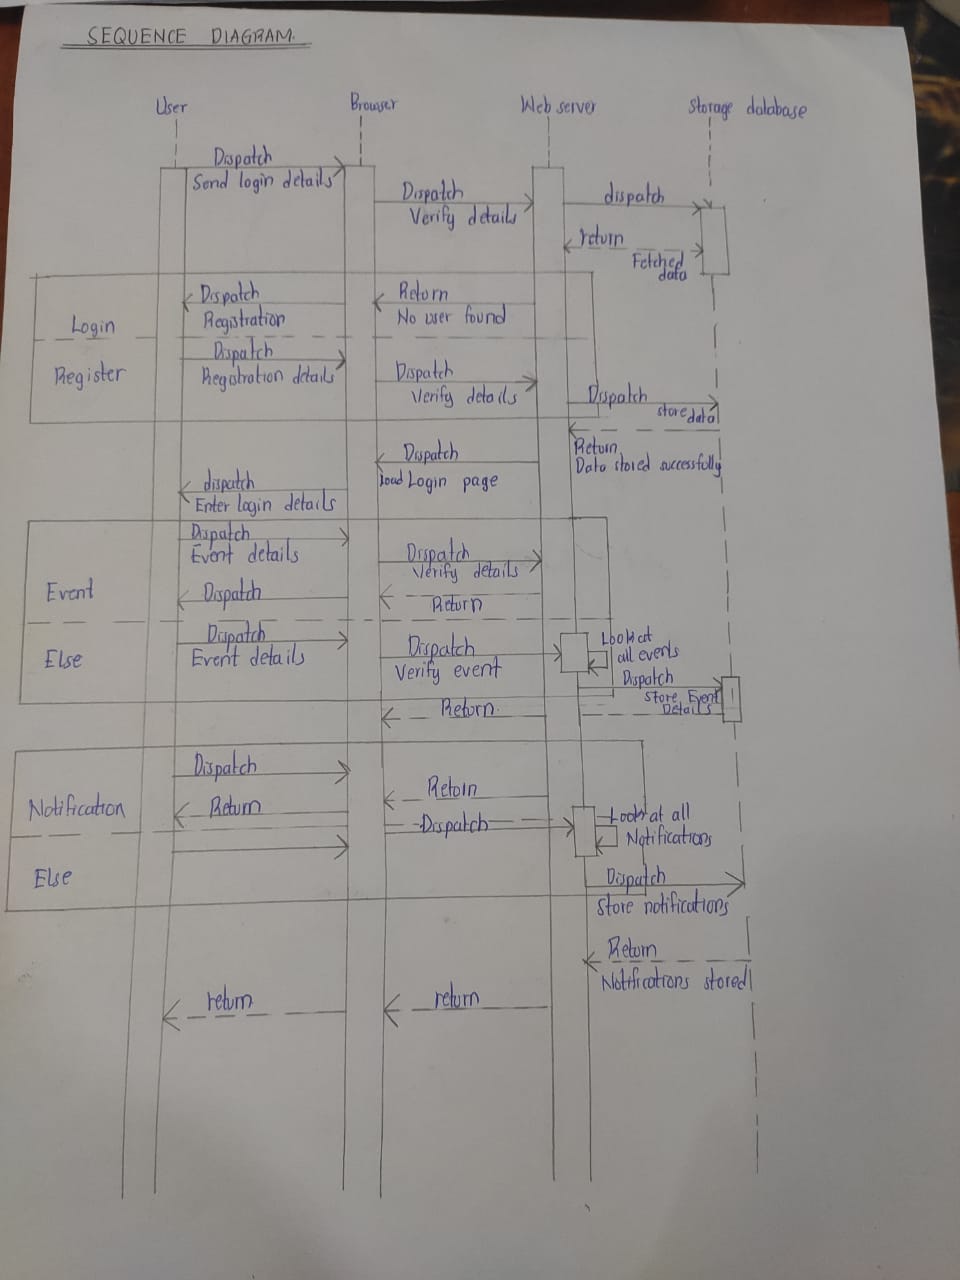 SEQUENCE DIAGRAM.
User
Browser
Web server
Storage database
Dispatch
Send login details
Dispatch
Verify details
dispatch
return
Fetched
data
Dispatch
Registration
Return
No user found
Login
Dispatch
Registration details
Register
Dispatch
Verify details
Dispatch
store data
Return
Data stored successfully
Dispatch
load Login page
dispatch
Enter login details
Dispatch
Event details
Dispatch
Verify details
Event
Dispatch
Return
Dispatch
Event details
Else
Dispatch
Verify event
Look at
all events
Dispatch
Store Event
Details
Return
Dispatch
Notification
Return
Dispatch
Look at all
Notifications
Else
Dispatch
Store notifications
Return
Notifications stored
return
return